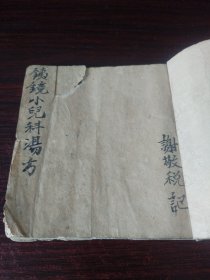 鏡小兒科湯方
謝敬稅記